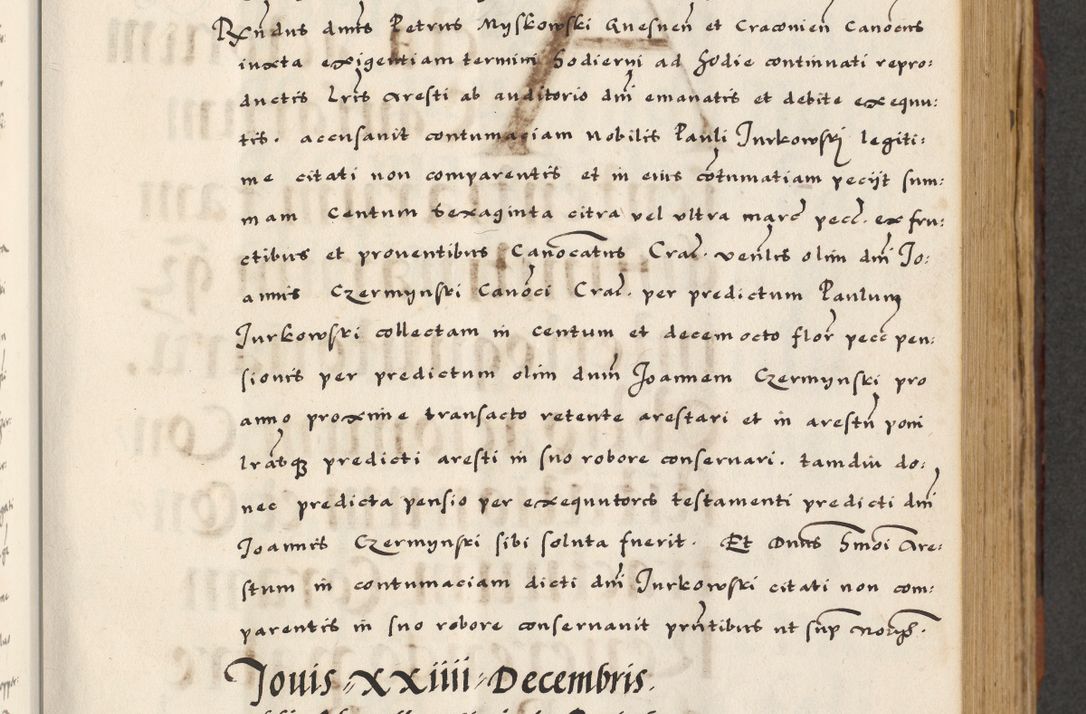 Rxndus dnus Petrus Myskowski Gnesnen et Cracovien Canocus
iuxta exigentiam termini hodierni ad hodie continuati repro-
ductis lris aresti ab auditorio dni emanatis et debite exequu-
tis. accusavit contumaciam nobilis Pauli Jurkowski legiti-
me citati non comparentis et in eius cotumatiam peciit sum-
mam Centum Sexaginta citra vel ultra marc pecc. ex fru-
ctibus et proventibus Canocatus Crac. venlis olim dni Jo-
annis Czermynski Canoci Crac. per predictum Paulum
Jurkowski collectam in centum et decem octo flor pecc pen-
sionis per predictum olim dnm Joannem Czermynski pro
anno proxime transacto retente arestari et in arestu poni
lrasq predicti aresti in suo robore conservari. tamdiu do-
nec predicta pensio per exequutores testamenti predicti dni
Joannis Czermynski sibi soluta fuerit. Et Dnus Smoi Are-
stum in contumaciam dicti dni Jurkowski citati non com-
parentis in suo robore conservavit prntibus ut sup
Jouis XXIIII Decembris.